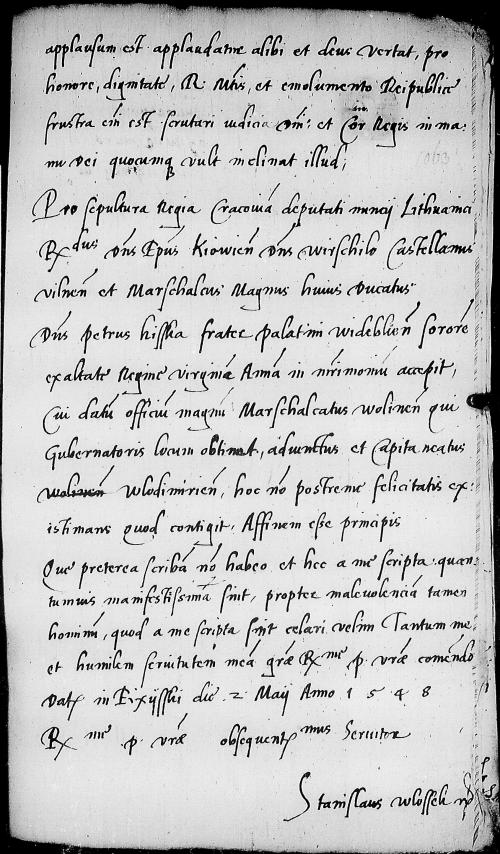 applausum est applaudatre alibi et deus vertat, pro
honore, dignitate, R. Mtis, et emolumento Reipublice
frustra em̃ est scrutari iudicia Dnĩ: et Cor Regis in ma-
nu Dei quocumq vult inclinat illud,
Pro sepultura Regia Cracoviã deputati nuncij Lithuanici
Rx dus Dns Epũs Kiowieñ Dns wirschilo Castellanus
vilneñ et Marschalcus Magnus huius Ducatus
Dns petrus kisska frater palatini widebleñ sororẽ
exaltate Regine virginẽ Annã in mr̃imoniũ accepit,
Cui datũ officiũ magnũ Marschalcatus wolineñ qui
Gubernatoris locum obtinet, adiunctus et Capitaneatus
wolineñ Wlodimirieñ, hoc nõ postreme felicitatis ex-
istimans quod contigit, Affinem esse principis
Que preterea scribã nõ habeo et hec a me scripta quan-
tumvis manifestissima sint, propter malevolencia tamen
hominũ, quod a me scripta sint celari velim Tantum me
et humilem servitutem meã grãe Rx me p. vrãe comẽdo
Dat in die 2 Maij Anno 1548
Rx me p. vrãe obsequent mus Servitor
Stanislaus wlossek